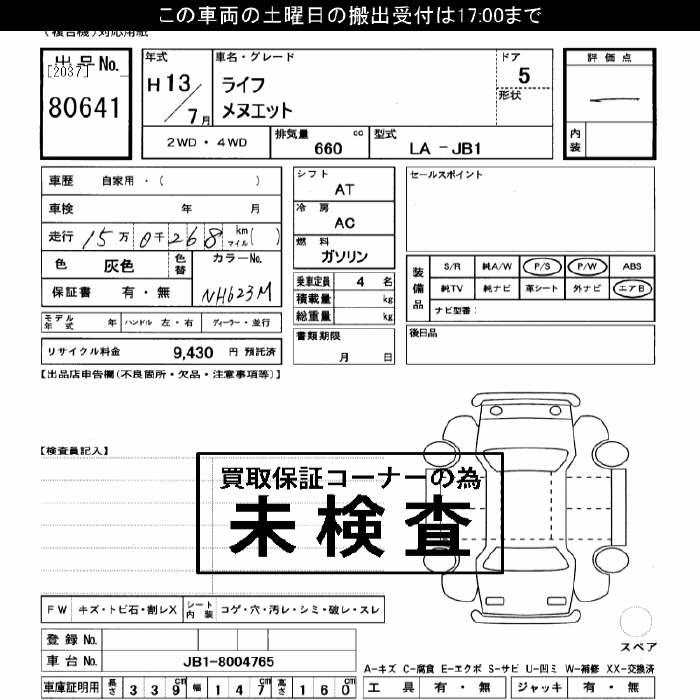 この車両の土曜日の搬出受付は17:00まで
出品No.
[2037]
80641
年式
H13/7月
車名・グレード
ライフ
メヌエット
ドア
5
形状
評価点
内装
2WD・4WD
排気量 cc
660
型式
LA－JB1
車歴 自家用・( )
車検 年 月
走行 15万0千268 km マイル( )
色 灰色 色替
カラーNo.
NH623M
保証書 有・無
モデル年式 年 ハンドル 左・右 ディーラー・並行
リサイクル料金 9,430 円 預託済
シフト
AT
冷房
AC
燃料
ガソリン
乗車定員 4 名
積載量 kg
総重量 kg
書類期限
月 日
セールスポイント
装備品
S/R 純A/W P/S P/W ABS
純TV 純ナビ 革シート 外ナビ エアB
ナビ型番:
後日品
【出品店申告欄(不良箇所・欠品・注意事項等)】
【検査員記入】
買取保証コーナーの為
未検査
FW キズ・トビ石・割レX シート内装 コゲ・穴・汚レ・シミ・破レ・スレ
登録No.
車台No. JB1-8004765
車庫証明用 長さ 339cm 幅 147cm 高さ 160cm
スペア
A-キズ C-腐食 E-エクボ S-サビ U-凹ミ W-補修 XX-交換済
工具 有・無 ジャッキ 有・無